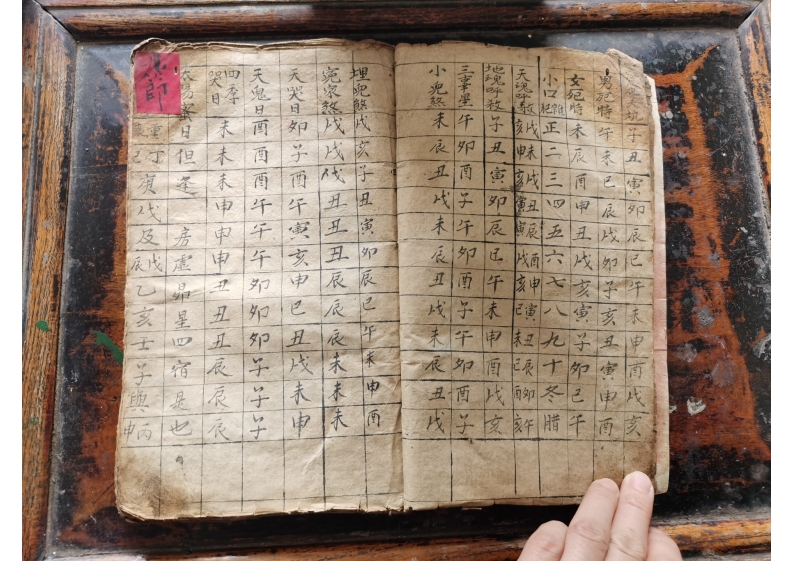 天坑 子 丑 寅 卯 辰 巳 午 未 申 酉 戌 亥
男犯時 午 未 巳 辰 戌 卯 子 亥 丑 寅 申 酉
女犯時 未 辰 酉 申 丑 戌 亥 寅 子 卯 巳 午
小口犯 正 二 三 四 五 六 七 八 九 十 冬 腊
天魂呼殺 戌亥 未申 戌亥 丑寅 辰寅 酉戌 申亥 寅巳 丑未 辰巳 卯酉 午亥
地魂呼殺 子 丑 寅 卯 辰 巳 午 未 申 酉 戌 亥
三事星 午 卯 酉 子 午 卯 酉 子 午 卯 酉 子
小兒煞 未 辰 丑 戌 未 辰 丑 戌 未 辰 丑 戌
埋兒煞 戌 亥 丑 寅 卯 辰 巳 午 未 申 酉
冤家煞 戌 戌 戌 丑 丑 丑 辰 辰 辰 未 未 未
天哭日 卯 子 酉 午 寅 亥 申 巳 丑 戌 未 申
天鬼日 酉 酉 酉 午 午 午 卯 卯 卯 子 子 子
四季哭日 未 未 未 申 申 申 丑 丑 丑 辰 辰 辰
太陽密日但逢房虛昴星四宿是也
重丁 戊及戊辰乙亥壬子與丙申
師